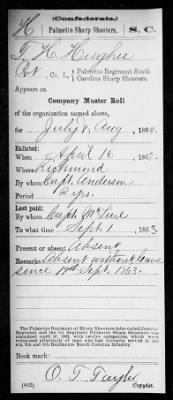 (Confederate.)
H Palmetto Sharp Shooters, S. C.
T. H. Hughes
Pvt, Co. I., Palmetto Regiment South Carolina Sharp Shooters.
Appears on
Company Muster Roll
of the organization named above,
for July & Aug, 1864.
Enlisted:
When April 16, 186
Where Richmond
By whom Capt. Anderson
Period 2 yrs.
Last paid:
By whom Capt.
To what time Sept 1, 1863
Present or absent Absent
Remarks: Absent without leave
since 14th Sept. 1863.
The Palmetto Regiment of Sharp Shooters (also called Jenkins'
Regiment and the 1st Regiment Palmetto Sharp Shooters) was
organized April 1862, with twelve companies, which were
composed principally of men who had formerly served in the
5th, 6th and 9th Regiments South Carolina Infantry.
Book mark:
(642) O. T. Taylor
Copyist.